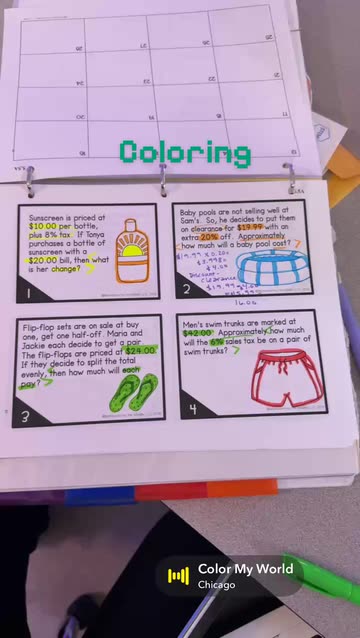 Coloring
Sunscreen is priced at
$10.00 per bottle,
plus 8% tax. If Tonya
purchases a bottle of
sunscreen with a
$20.00 bill, then what
is her change?
1
Baby pools are not selling well at
Sam's. So, he decides to put them
on clearance for $19.99 with an
extra 20% off. Approximately
how much will a baby pool cost?
$19.99 x 0.20=
$3.998=
$4.00
Discount-
Clearance
16.00
2
Flip-flop sets are on sale at buy
one, get one half-off. Maria and
Jackie each decide to get a pair.
The flip-flops are priced at $24.00.
If they decide to split the total
evenly, then how much will each
pay?
3
Men's swim trunks are marked at
$42.00. Approximately how much
will the 6% sales tax be on a pair of
swim trunks?
4
Color My World
Chicago